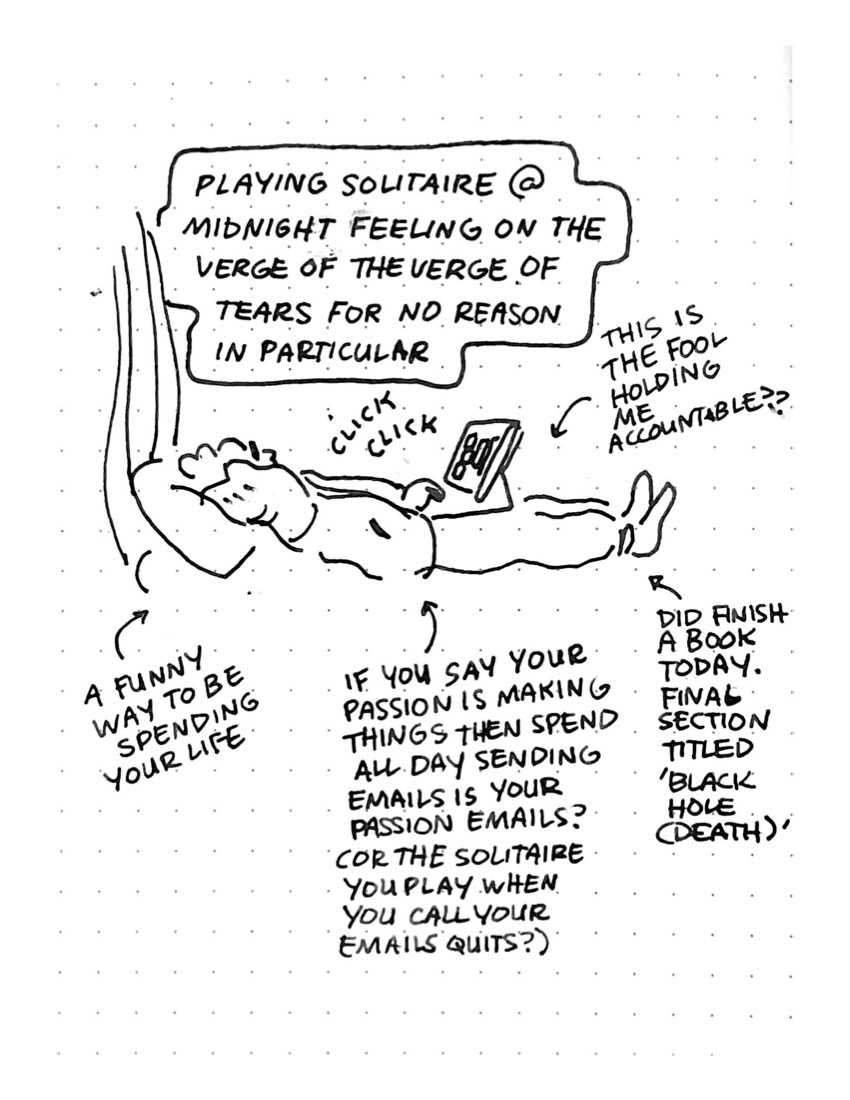 PLAYING SOLITAIRE @
MIDNIGHT FEELING ON THE
VERGE OF THE VERGE OF
TEARS FOR NO REASON
IN PARTICULAR
THIS IS
THE FOOL
HOLDING
ME
ACCOUNTABLE??
CLICK
CLICK
A FUNNY
WAY TO BE
SPENDING
YOUR LIFE
IF YOU SAY YOUR
PASSION IS MAKING
THINGS THEN SPEND
ALL DAY SENDING
EMAILS IS YOUR
PASSION EMAILS?
(OR THE SOLITAIRE
YOU PLAY WHEN
YOU CALL YOUR
EMAILS QUITS?)
DID FINISH
A BOOK
TODAY.
FINAL
SECTION
TITLED
'BLACK
HOLE
(DEATH)'